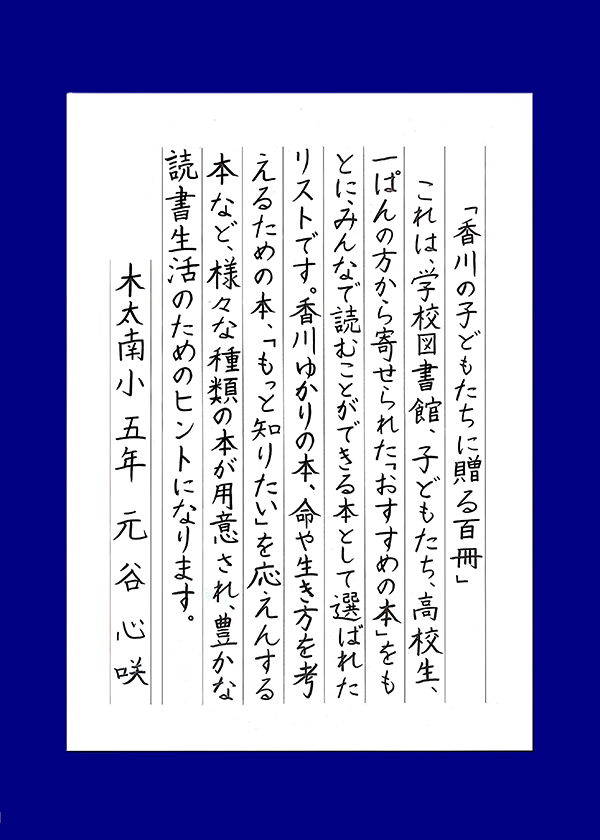 「香川の子どもたちに贈る百冊」
これは、学校図書館、子どもたち、高校生、
一ぱんの方から寄せられた「おすすめの本」をも
とに、みんなで読むことができる本として選ばれた
リストです。香川ゆかりの本、命や生き方を考
えるための本、「もっと知りたい」を応えんする
本など、様々な種類の本が用意され、豊かな
読書生活のためのヒントになります。
木太南小五年 元谷心咲